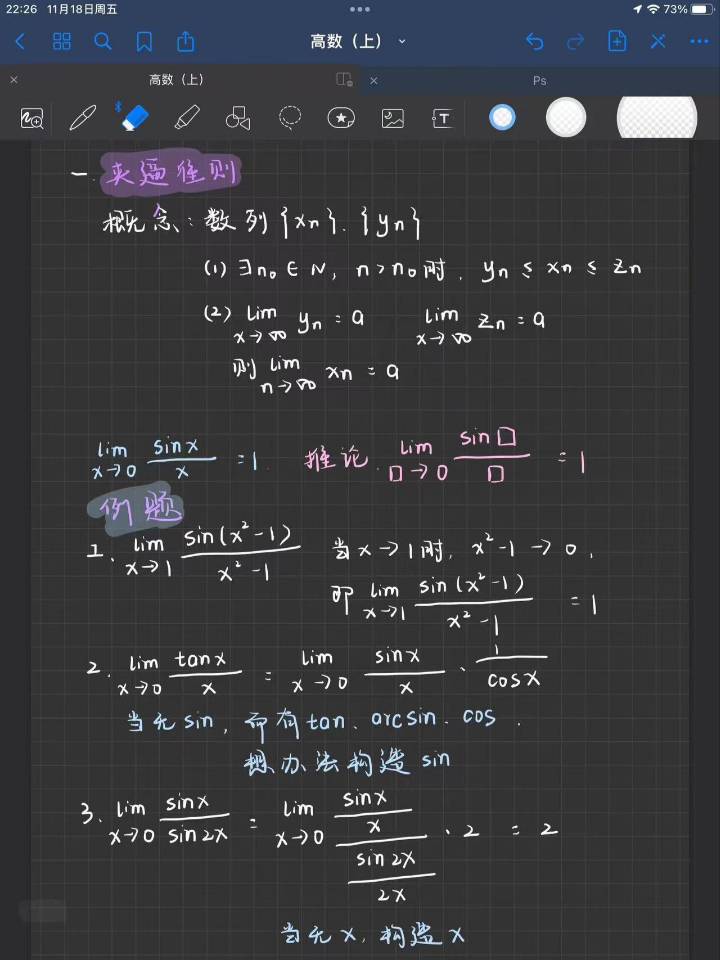 22:26 11月18日周五 73%
高数（上）
高数（上） Ps
一. 夹逼准则
概念：数列{xn}.{yn}
(1) ∃n₀∈N, n>n₀时, yn ≤ xn ≤ zn
(2) lim x→∞ yn = a lim x→∞ zn = a
则 lim n→∞ xn = a
lim x→0 sinx/x = 1. 推论. lim □→0 sin□/□ = 1
例题
1. lim x→1 sin(x²-1)/(x²-1) 当x→1时, x²-1→0,
即 lim x→1 sin(x²-1)/(x²-1) = 1
2. lim x→0 tanx/x = lim x→0 sinx/x · 1/cosx
当无sin, 而有tan、arcsin、cos.
想办法构造sin
3. lim x→0 sinx/sin2x = lim x→0 (sinx/x)/(sin2x/2x) · 2 = 2
当无x, 构造x